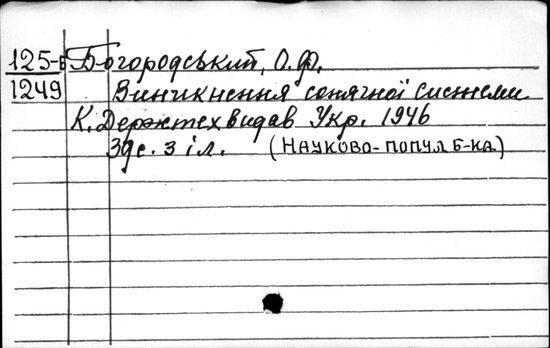 125-Б Богородський, О.Ф.
1249 Виникнення сонячної системи
К. Держтехвидав Укр. 1946
39с. з іл. (Науково-попул б-ка)